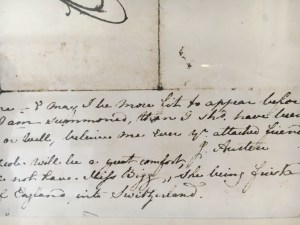 & may I be more fit to appear befor
I am summoned, than I shd have been
or Well, beleive me ever yr attached friend
will be a great comfort, J. Austen
not have Miss Bigg, she being frisk
England, into Switzerland.